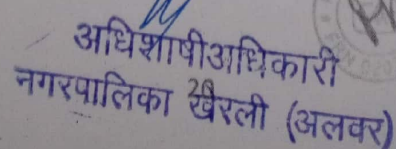 अधिशाषीअधिकारी
नगरपालिका खैरली (अलवर)